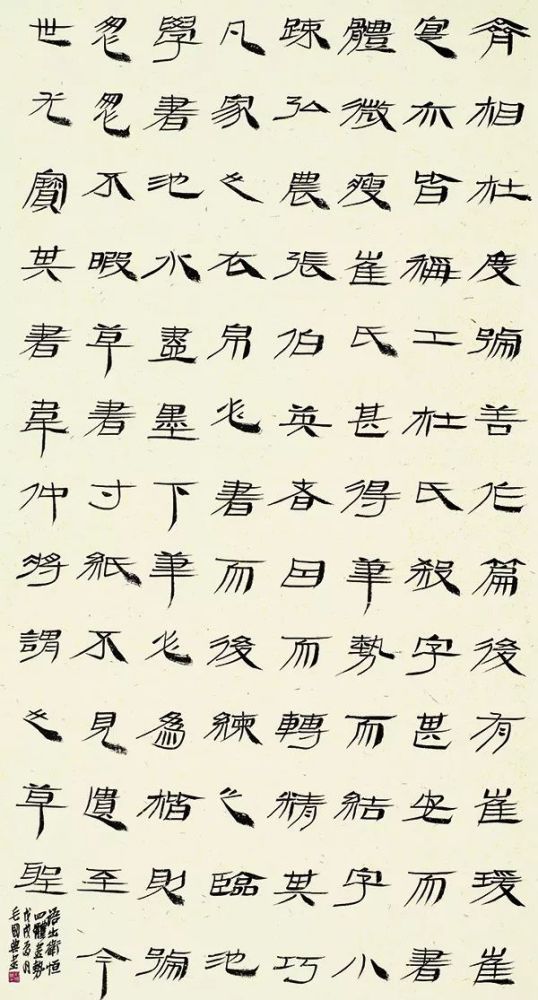 齊相杜度號善作篇後有崔瑗崔
寔亦皆稱工杜氏殺字甚安而書
體微瘦崔氏甚得筆勢而結字小
踈弘農張伯英者因而轉精其巧
凡家之衣帛必書而後練之臨池
學書池水盡墨下筆必為楷則號
怱怱不暇草書寸紙不見遺至今
世尤寶其書韋仲將謂之草聖
語出衛恒
四體書勢
戊戌月
毛國典書